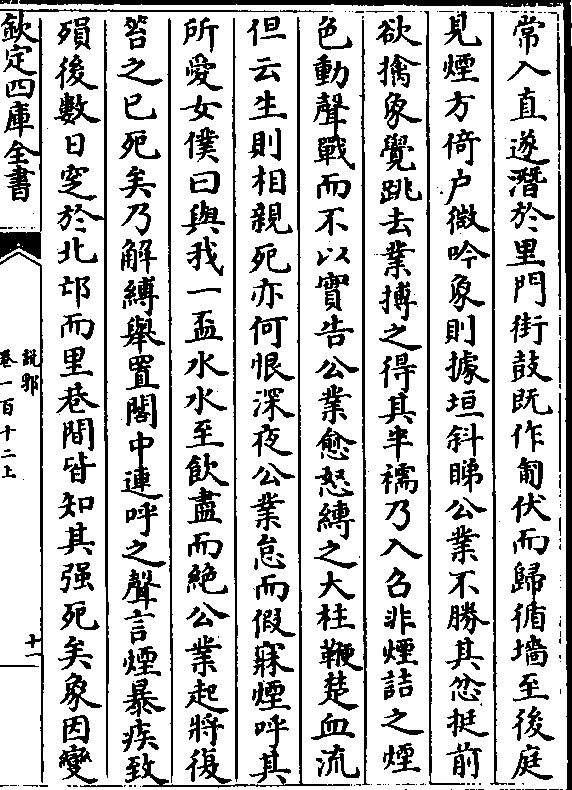 常入直遂潛於里門街鼓既作匍伏而歸循墻至後庭
見煙方倚户微吟象則據垣斜睇公業不勝其忿挺前
欲擒象覺跳去業搏之得其半襦乃入召非煙詰之煙
色動聲戰而不以實告公業愈怒縛之大柱鞭楚血流
但云生則相親死亦何恨深夜公業怠而假寐煙呼其
所愛女僕曰與我一盃水水至飲盡而絶公業起將復
笞之已死矣乃解縛舉置閣中連呼之聲言煙暴疾致
殞後數日窆於北邙而里巷間皆知其强死矣象因變
欽定四庫全書
說郛
卷一百十二上
十一